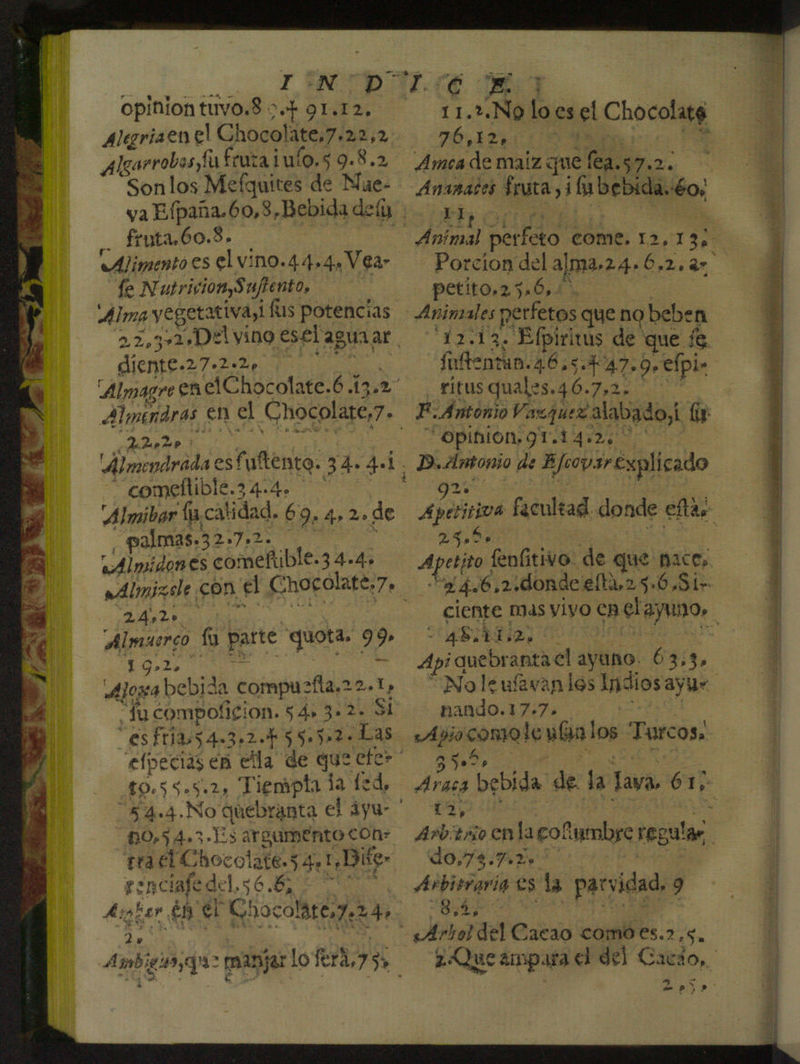 INDICE.
opinion tuvo.8 .f 91.12.
Alegria en el Chocolate.7.22,2
Algarrobas, su fruta i uso.59.8.2
Son los Mesquites de Nue-
va España.60,8,Bebida de su
fruta.60.8.
Alimento es el vino.44.4. Vea-
se Nutricion, Sustento,
Alma vegetativa,i sus potencias
22,3.2.Del vino es el agua ar
diente.27.2.2,
Almagre en el Chocolate.6.13.2
Almendras en el Chocolate,7.
22,2,
Almendrada es sustento. 34.4.i
comestible.34.4.
Almibar su calidad. 69. 4, 2. de
palmas.32.7.2.
Almidon es comestible.34.4.
Almizcle con el Chocolate.7.
24,2.
Almuerço su parte quota. 99.
19,2,
Aloxa bebida compuesta.22.1,
su composicion. 54. 3.2. Si
es fria.54.3.2.f 55.5.2. Las
especias en ella de que efe-
to.55.5.2, Tiempla la sed,
54.4.No quebranta el ayu-
no,54.3.Es argumento con-
tra el Chocolate.54.1,Dife-
renciase del.56.6;
Ambar en el Chocolate,7.24,
2.
Ambigus, que manjar lo será,75,
11.2.No lo es el Chocolate
76,12,
Amca de maiz que sea.57.2.
Ananaces fruta, i su bebida.60,
11,
Animal perfeto come. 12, 13,
Porcion del alma.24. 6,2. a-
petito.25.6,
Animales perfetos que no beben
12.13. Espiritus de que se
sustentan.46.5.f 47.9. espi-
ritus quales.46.7,2.
F.Antonio Vazquez alabado,i su
opinion.91.14.2.
D.Antonio de Escovar explicado
92.
Apetitiva facultad donde està,
25.6.
Apetito sensitivo de que nace,
24.6.2.donde està.25.6.Si-
ciente mas vivo en el ayuno,
48.11.2,
Api quebranta el ayuno. 63.3,
No le usavan los Indios ayu-
nando.17.7.
Apio como le usan los Turcos.
35.6,
Araca bebida de la Java. 61,
12,
Arbitrio en la costumbre regula-
do.73.7.2.
Arbitraria es la parvidad. 9
8.2,
Arbol del Cacao como es.2,5.
2.Que ampara el del Cacao,
2,5,